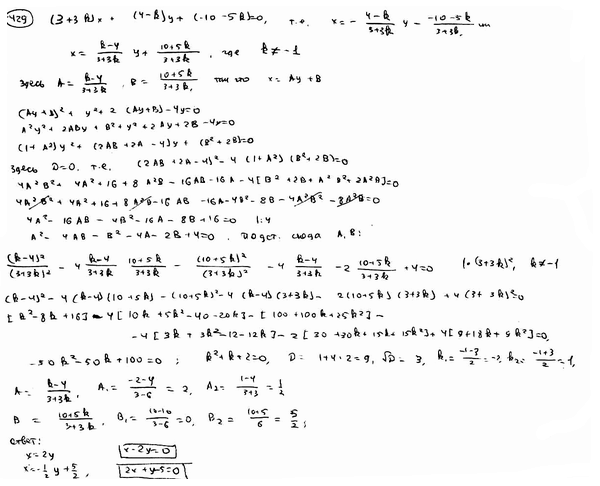 429 (3+3k)x + (4-k)y + (-10-5k)=0, т.е. x = - \frac{4-k}{3+3k} y - \frac{-10-5k}{3+3k}, или
x = \frac{k-4}{3+3k} y + \frac{10+5k}{3+3k}, где k ≠ -1
Здесь A = \frac{k-4}{3+3k}, B = \frac{10+5k}{3+3k}, так что x = Ay + B
(Ay+B)² + y² + 2(Ay+B) - 4y = 0
A²y² + 2ABy + B² + y² + 2Ay + 2B - 4y = 0
(1+A²)y² + (2AB + 2A - 4)y + (B² + 2B) = 0
Здесь D=0, т.е. (2AB + 2A - 4)² - 4(1+A²)(B²+2B) = 0
4A²B² + 4A² + 16 + 8A²B - 16AB - 16A - 4[B² + 2B + A²B² + 2A²B] = 0
4A²B² + 4A² + 16 + 8A²B - 16AB - 16A - 4B² - 8B - 4A²B² - 8A²B = 0
4A² - 16AB - 4B² - 16A - 8B + 16 = 0 1:4
A² - 4AB - B² - 4A - 2B + 4 = 0. Подст. сюда A, B:
\frac{(k-4)²}{(3+3k)²} - 4 \frac{k-4}{3+3k} \frac{10+5k}{3+3k} - \frac{(10+5k)²}{(3+3k)²} - 4 \frac{k-4}{3+3k} - 2 \frac{10+5k}{3+3k} + 4 = 0 |·(3+3k)², k ≠ -1
(k-4)² - 4(k-4)(10+5k) - (10+5k)² - 4(k-4)(3+3k) - 2(10+5k)(3+3k) + 4(3+3k)² = 0
[k² - 8k + 16] - 4[10k + 5k² - 40 - 20k] - [100 + 100k + 25k²] -
-4[3k + 3k² - 12 - 12k] - 2[30 + 30k + 15k + 15k²] + 4[9 + 18k + 9k²] = 0,
-50k² - 50k + 100 = 0; k² + k + 2 = 0, D = 1+4·2 = 9, √D = 3, k₁ = \frac{-1-3}{2} = -2, k₂ = \frac{-1+3}{2} = 1,
A = \frac{k-4}{3+3k}, A₁ = \frac{-2-4}{3-6} = 2, A₂ = \frac{1-4}{3+3} = \frac{1}{2}
B = \frac{10+5k}{3+3k}, B₁ = \frac{10-10}{3-6} = 0, B₂ = \frac{10+5}{6} = \frac{5}{2};
ответ:
x = 2y x-2y=0
x = -\frac{1}{2} y + \frac{5}{2}, 2x+y-5=0